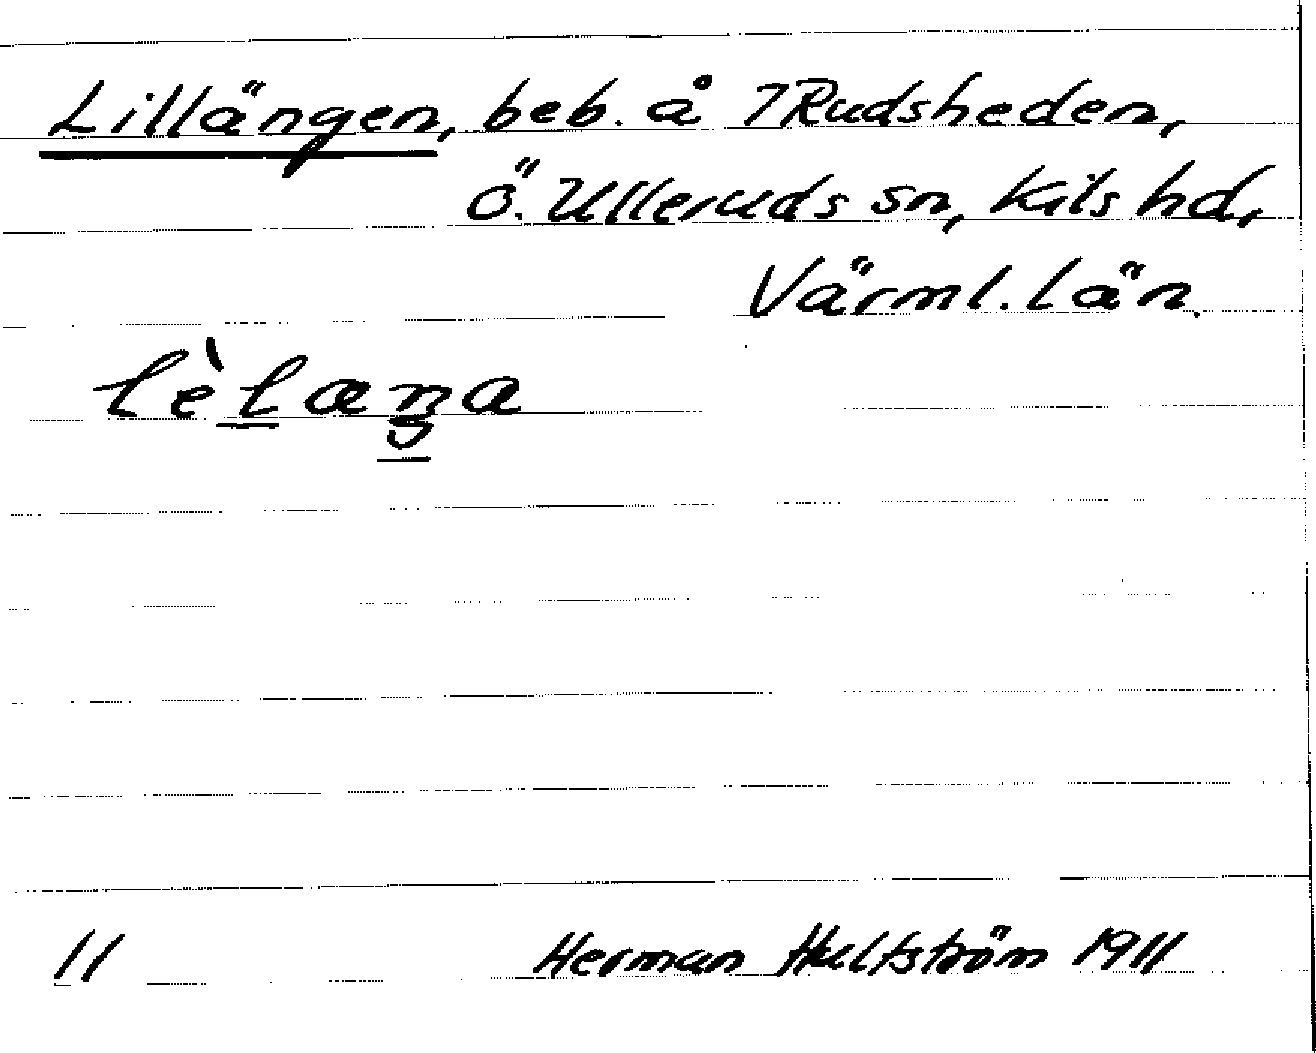 Lillängen, beb. å 7 Rudsheden,
Ö. Ulleruds sn, Kils hd,
Värml. län.
lèlæŋa
11 Herman Hultström 1911